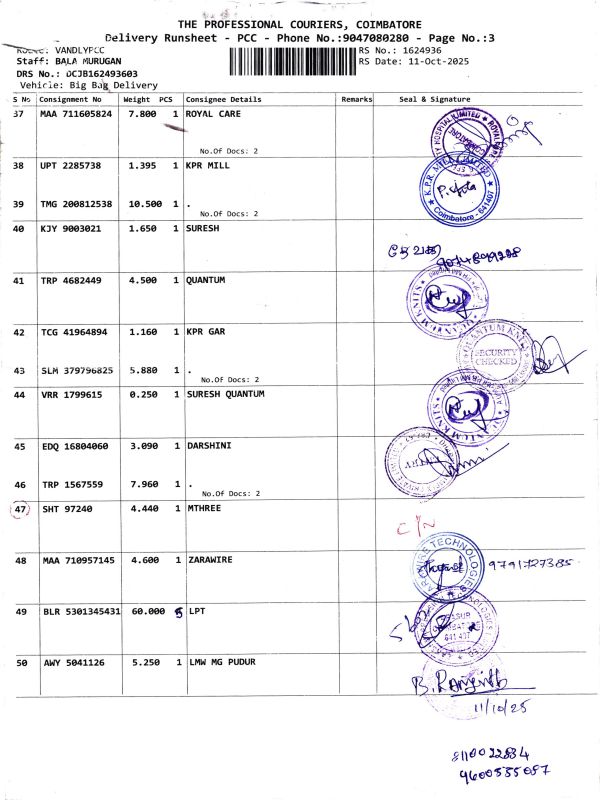 THE PROFESSIONAL COURIERS, COIMBATORE
Delivery Runsheet - PCC - Phone No.:9047080280 - Page No.:3
VANDLYPCC
RS No.: 1624936
Staff: BALA MURUGAN
RS Date: 11-Oct-2025
DRS No.: DCJB162493603
Vehicle: Big Bag Delivery
S No Consignment No Weight PCS Consignee Details Remarks Seal & Signature
37 MAA 711605824 7.800 1 ROYAL CARE
No.Of Docs: 2
38 UPT 2285738 1.395 1 KPR MILL
K.P.R. MILL LIMITED
Coimbatore - 641407
39 TMG 200812538 10.500 1 .
No.Of Docs: 2
40 KJY 9003021 1.650 1 SURESH
41 TRP 4682449 4.500 1 QUANTUM
QUANTUM KNITS
42 TCG 41964894 1.160 1 KPR GAR
QUANTUM KNITS
SECURITY
CHECKED
43 SLM 379796825 5.880 1 .
No.Of Docs: 2
44 VRR 1799615 0.250 1 SURESH QUANTUM
QUANTUM KNITS
45 EDQ 16804060 3.090 1 DARSHINI
46 TRP 1567559 7.960 1 .
No.Of Docs: 2
47 SHT 97240 4.440 1 MTHREE
C/N
48 MAA 710957145 4.600 1 ZARAWIRE
TECHNOLOGIES
9791727385
49 BLR 5301345431 60.000 5 LPT
50 AWY 5041126 5.250 1 LMW MG PUDUR
B. Ranjith
11/10/25
8110022884
9600535087